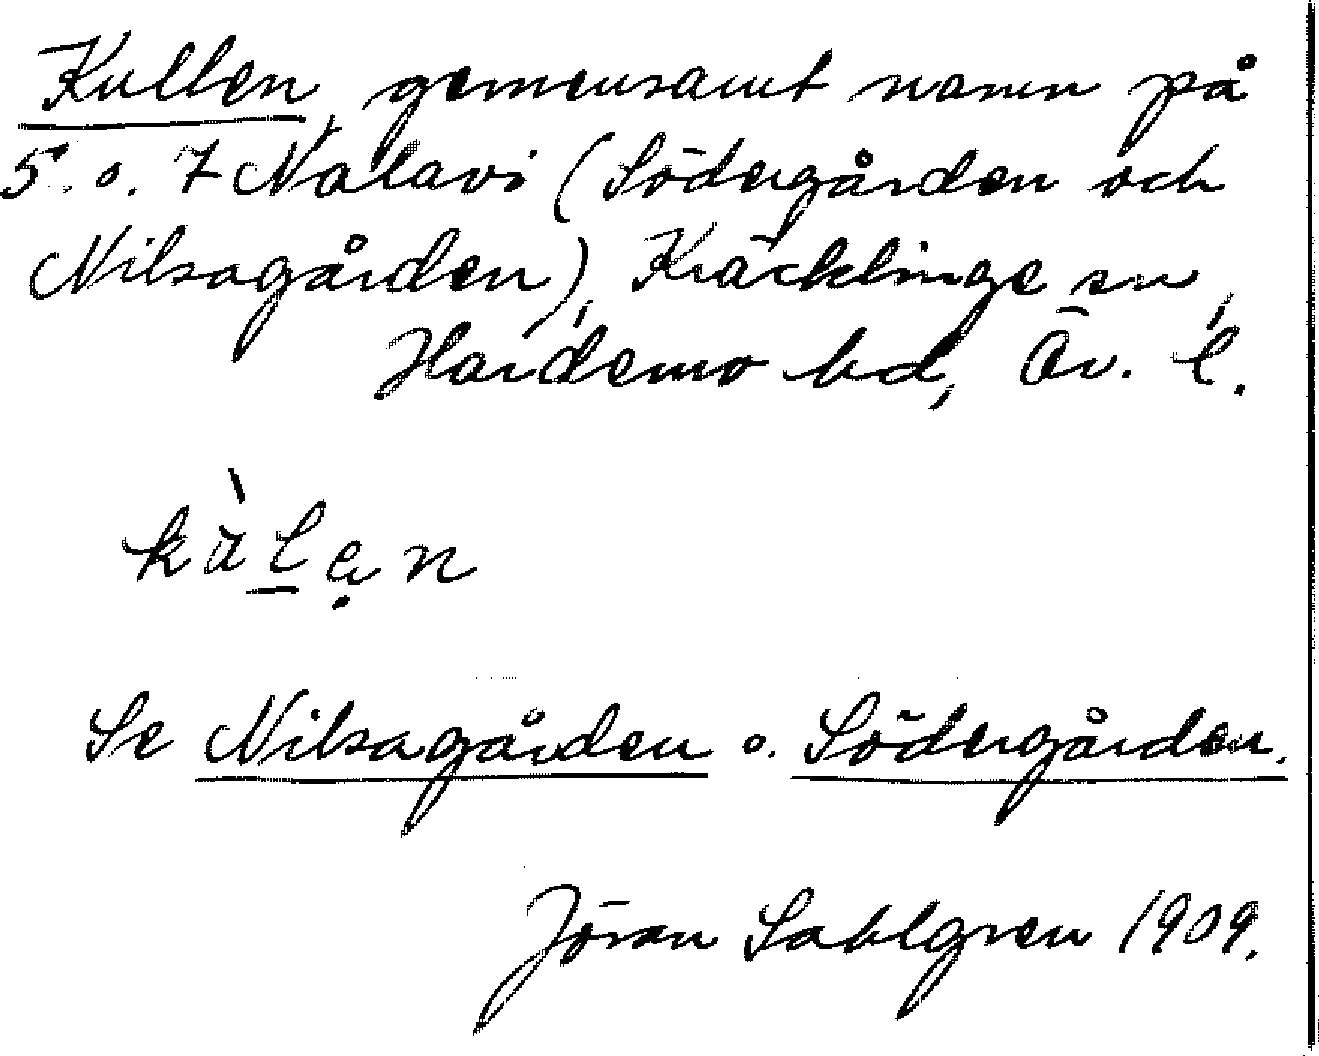 Kullen, gemensamt namn på
5 o. 7 Nalavi (Södergården och
Nilsagården), Kräcklinge sn,
Hardemo hd, Ör. l.
kàl̲ẹn
Se Nilsagården o. Södergården.
Jöran Sahlgren 1909.